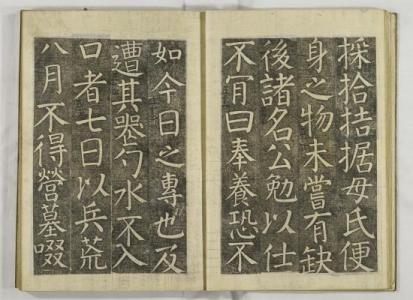 採拾拮据母氏便
身之物未嘗有缺
後諸名公勉以仕
不肎曰奉養恐不
如今日之專也及
遭其喪勺水不入
口者七日以兵荒
八月不得營墓啜